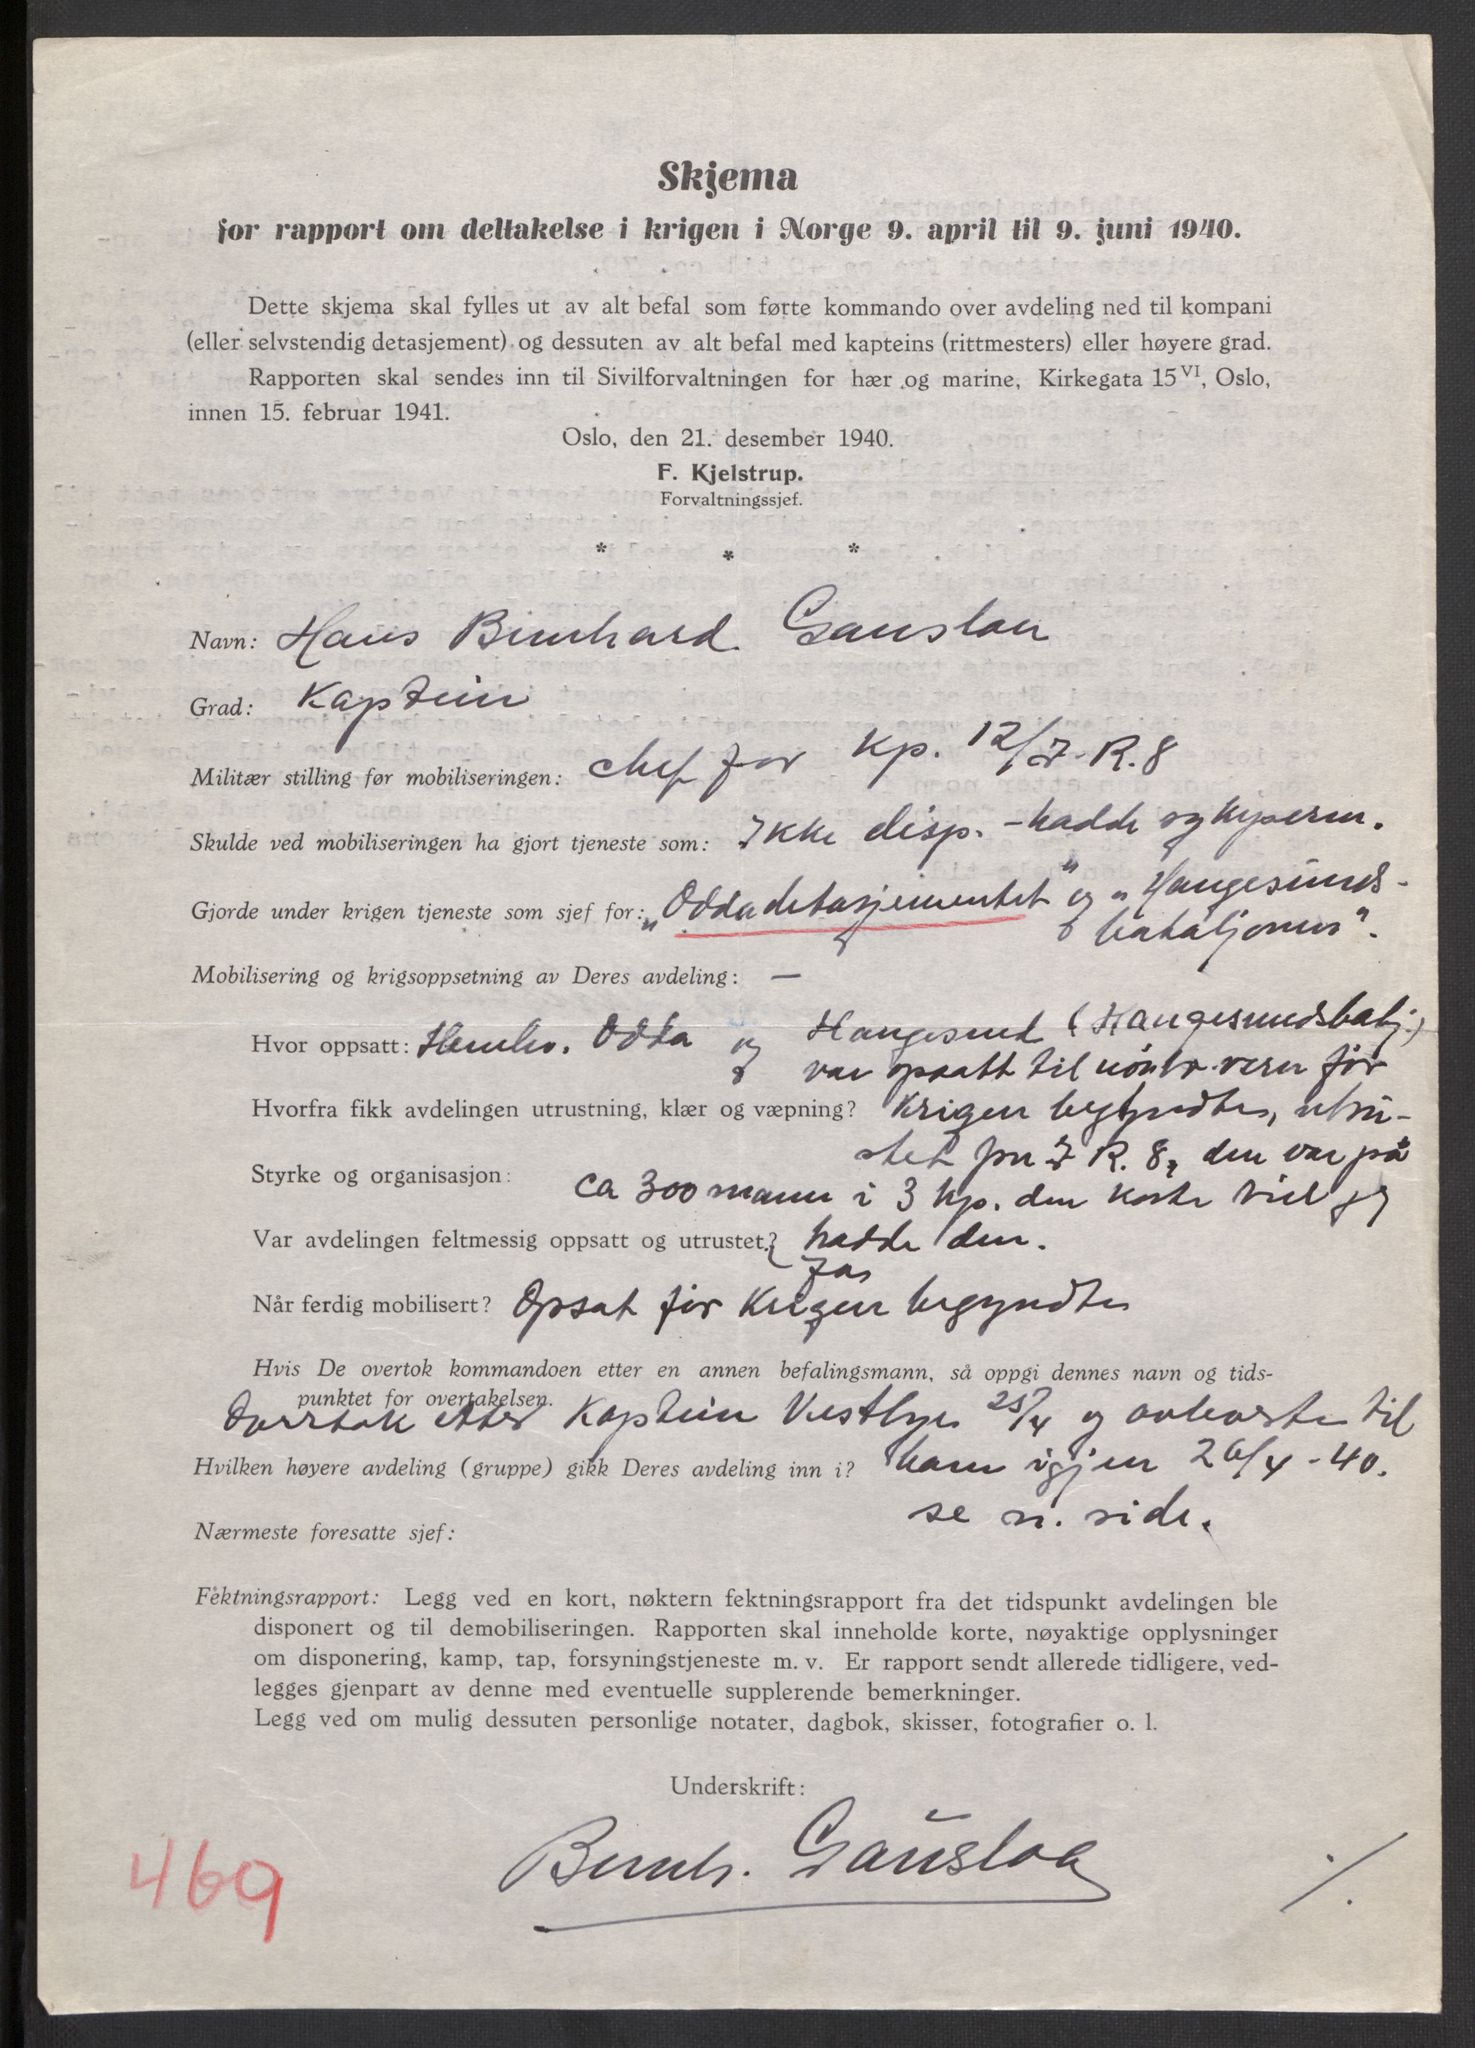 Skjema
for rapport om deltakelse i krigen i Norge 9. april til 9. juni 1940.
Dette skjema skal fylles ut av alt befal som førte kommando over avdeling ned til kompani
(eller selvstendig detasjement) og dessuten av alt befal med kapteins (rittmesters) eller høyere grad.
Rapporten skal sendes inn til Sivilforvaltningen for hær og marine, Kirkegata 15 VI, Oslo,
innen 15. februar 1941.
Oslo, den 21. desember 1940.
F. Kjelstrup.
Forvaltningssjef.
* * *
Navn: Hans Bernhard Gauslaa
Grad: Kaptein
Militær stilling før mobiliseringen: chef for Kp. 12/I.R.8
Skulde ved mobiliseringen ha gjort tjeneste som: Ikke disp. - hadde sykeperm.
Gjorde under krigen tjeneste som sjef for: „Oddadetasjementet" og „Haugesunds-
bataljonen".
Mobilisering og krigsoppsetning av Deres avdeling: —
Hvor oppsatt: Henhv. Odda og Haugesund (Haugesundsbatj.)
var opsatt til nøitr.vern før
Hvorfra fikk avdelingen utrustning, klær og væpning? krigen begyndte, utru-
stet fra I.R.8, den var på
Styrke og organisasjon: ca 300 mann i 3 kp. den korte tid jeg
Var avdelingen feltmessig oppsatt og utrustet? hadde den.
Ja
Når ferdig mobilisert? Opsat før krigen begyndte
Hvis De overtok kommandoen etter en annen befalingsmann, så oppgi dennes navn og tids-
punktet for overtakelsen.
Overtok etter Kaptein Vestbye 25/4 og avleverte til
Hvilken høyere avdeling (gruppe) gikk Deres avdeling inn i? ham igjen 26/4-40.
se n. side.
Nærmeste foresatte sjef:
Fektningsrapport: Legg ved en kort, nøktern fektningsrapport fra det tidspunkt avdelingen ble
disponert og til demobiliseringen. Rapporten skal inneholde korte, nøyaktige opplysninger
om disponering, kamp, tap, forsyningstjeneste m. v. Er rapport sendt allerede tidligere, ved-
legges gjenpart av denne med eventuelle supplerende bemerkninger.
Legg ved om mulig dessuten personlige notater, dagbok, skisser, fotografier o. l.
Underskrift:
Bernh. Gauslaa
469
./.